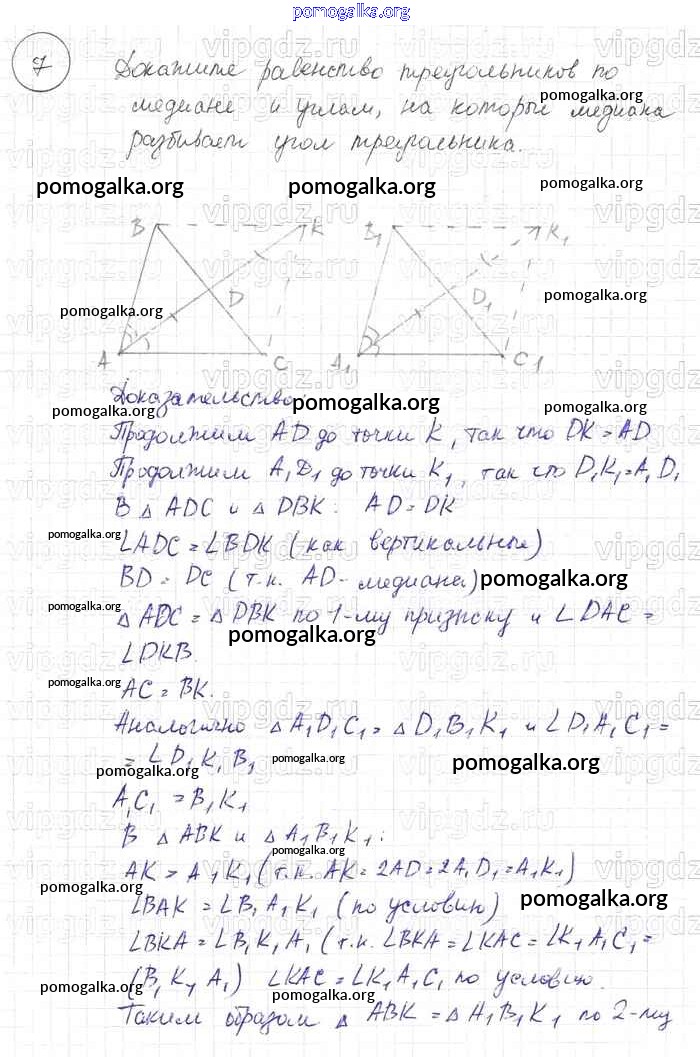 pomogalka.org
7
Докажите равенство треугольников по
pomogalka.org
медиане и углам, на которые медиана
разбивает угол треугольника.
pomogalka.org pomogalka.org pomogalka.org
B K B₁ K₁
D D₁
pomogalka.org pomogalka.org
A C A₁ C₁
Доказательство:
pomogalka.org pomogalka.org pomogalka.org
Продолжим AD до точки K, так что DK = AD
Продолжим A₁D₁ до точки K₁, так что D₁K₁ = A₁D₁
pomogalka.org pomogalka.org
В △ ADC и △ DBK: AD = DK
pomogalka.org
∠ADC = ∠BDK (как вертикальные)
BD = DC (т.к. AD - медиана) pomogalka.org
pomogalka.org
△ ADC = △ DBK по 1-му признаку и ∠DAC =
pomogalka.org
∠DKB.
pomogalka.org
AC = BK.
Аналогично △ A₁D₁C₁ = △ D₁B₁K₁ и ∠D₁A₁C₁ =
= ∠D₁K₁B₁
pomogalka.org pomogalka.org pomogalka.org
A₁C₁ = B₁K₁
В △ ABK и △ A₁B₁K₁:
pomogalka.org
AK = A₁K₁ (т.к. AK = 2AD = 2A₁D₁ = A₁K₁)
pomogalka.org
∠BAK = ∠B₁A₁K₁ (по условию) pomogalka.org
∠BKA = ∠B₁K₁A₁ (т.к. ∠BKA = ∠KAC = ∠K₁A₁C₁ =
pomogalka.org
(B₁K₁A₁) ∠KAC = ∠K₁A₁C₁ по условию.
pomogalka.org pomogalka.org
Таким образом △ ABK = △ A₁B₁K₁ по 2-му